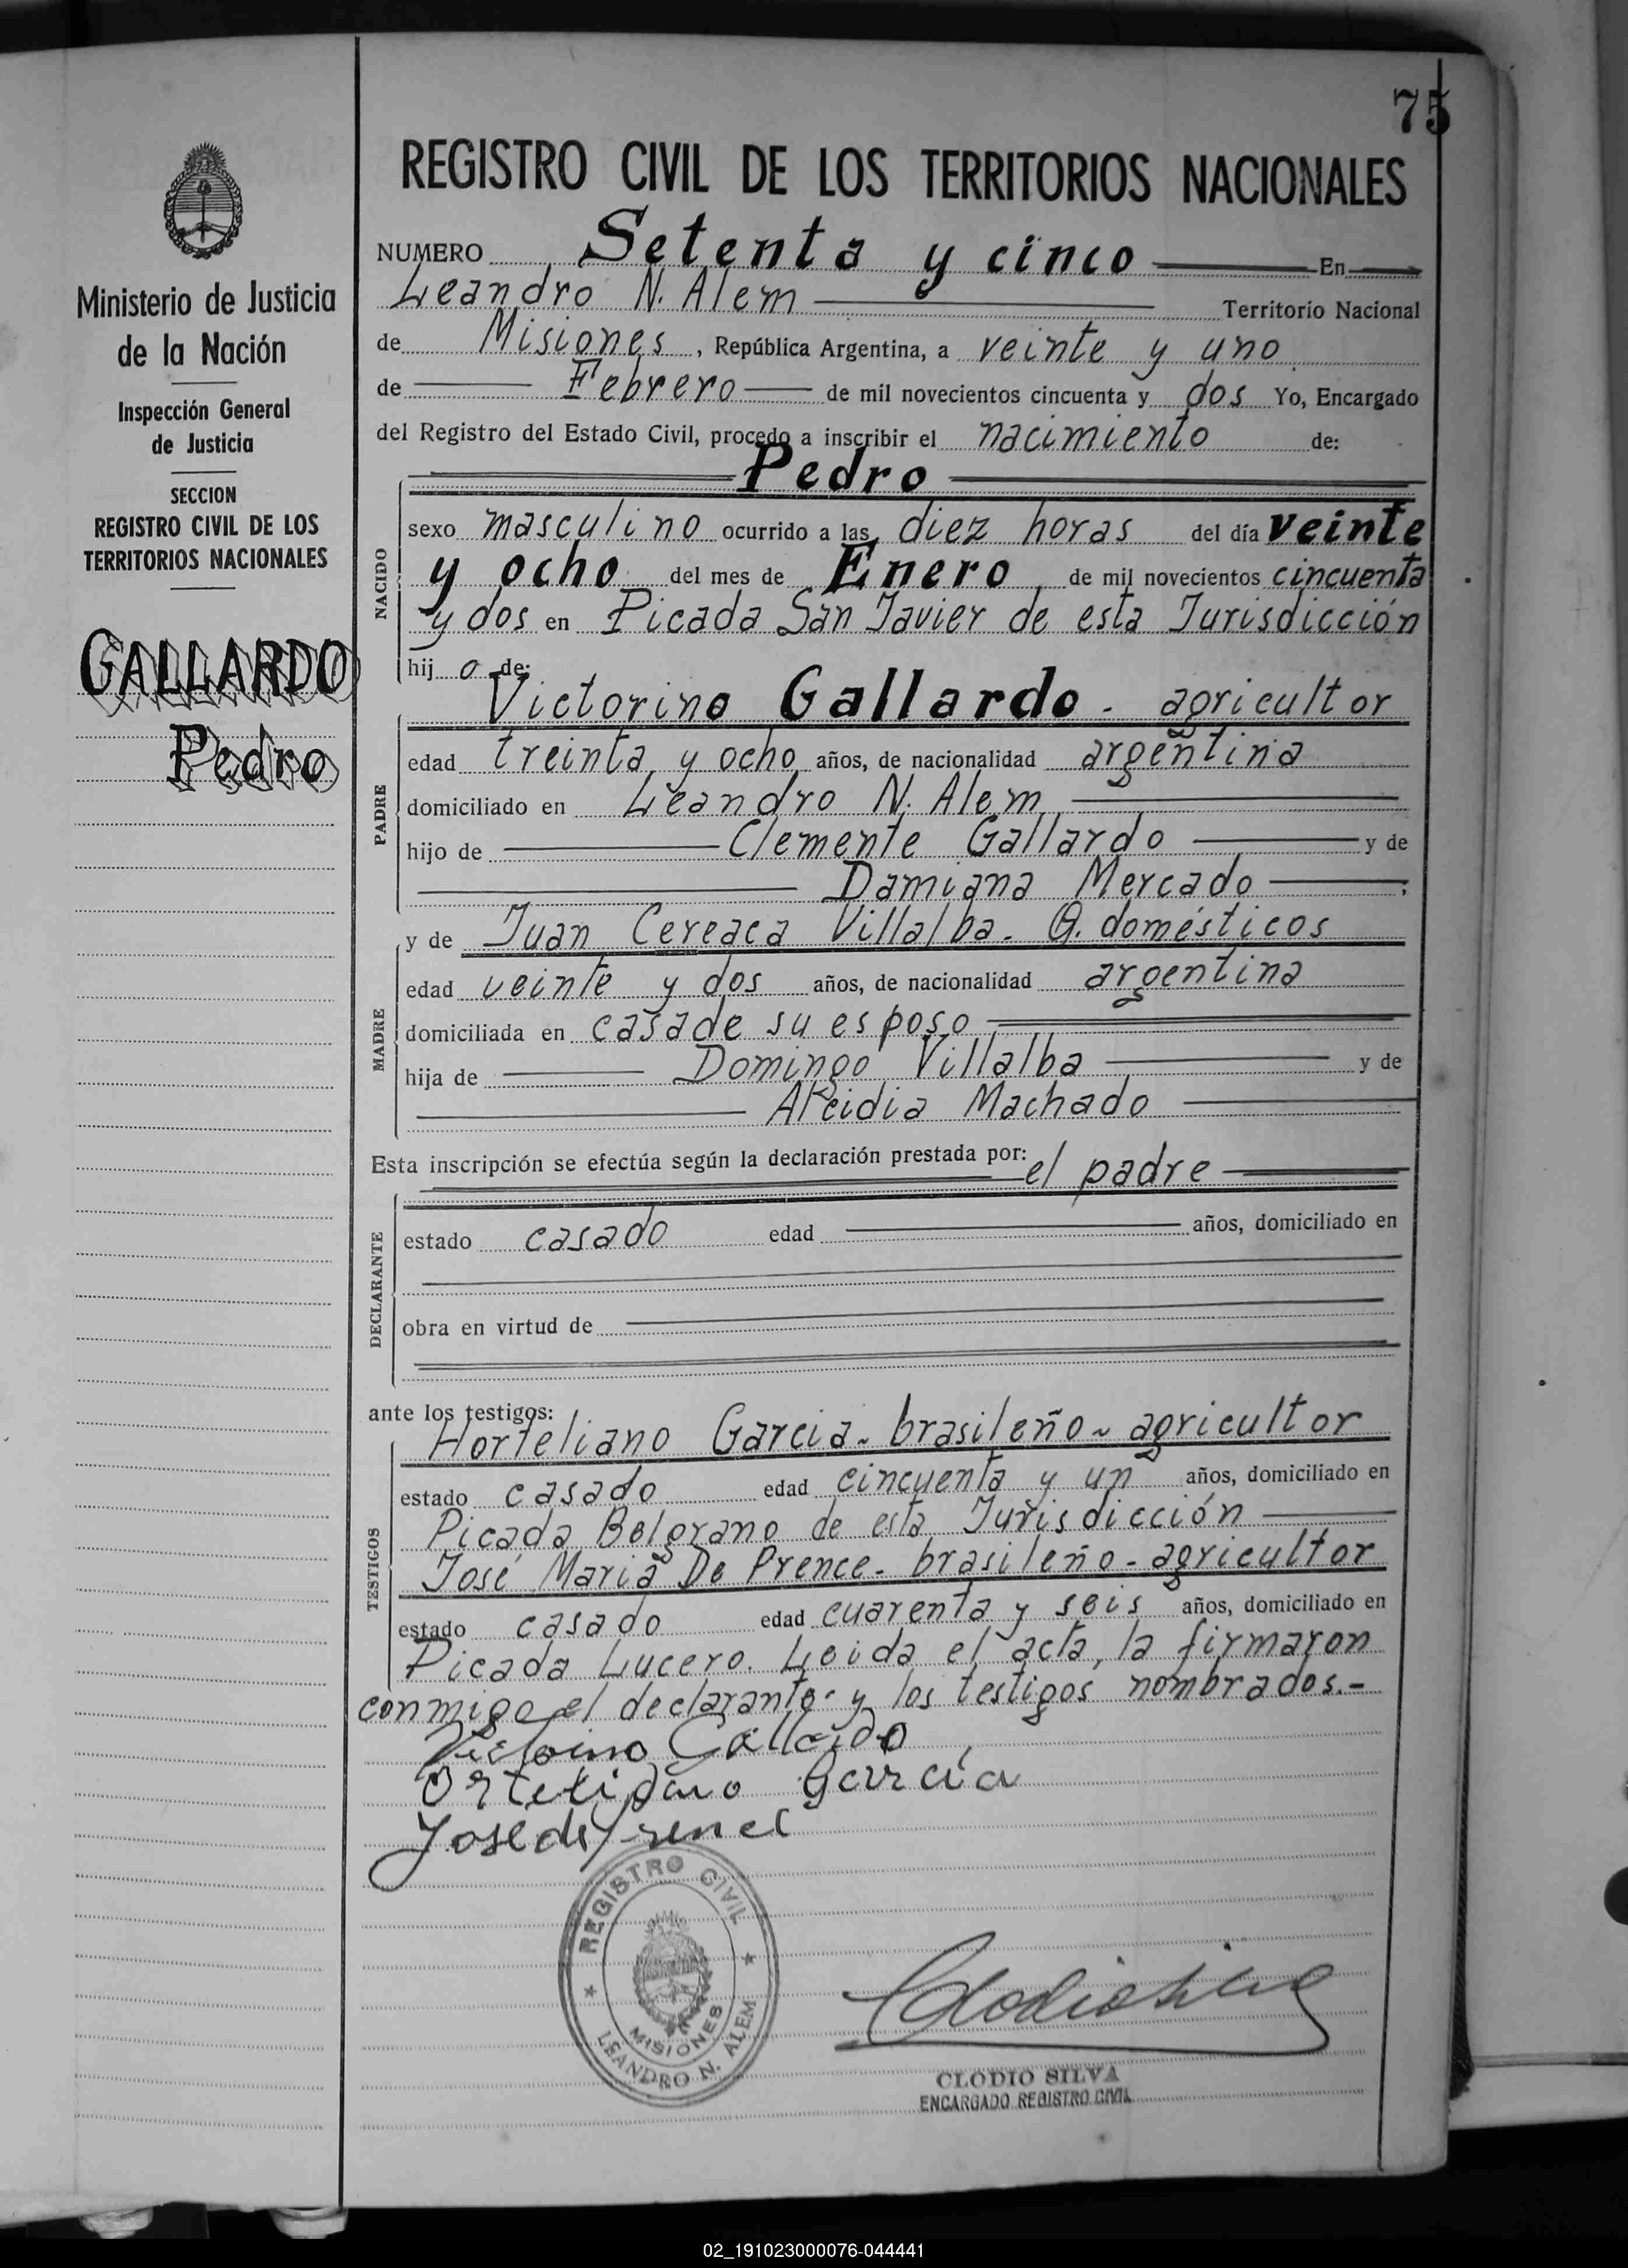 75
REGISTRO CIVIL DE LOS TERRITORIOS NACIONALES
NUMERO Setenta y cinco En
Leandro N. Alem Territorio Nacional
de Misiones, República Argentina, a veinte y uno
de Febrero de mil novecientos cincuenta y dos Yo, Encargado
del Registro del Estado Civil, procedo a inscribir el nacimiento de:
Ministerio de Justicia
de la Nación
Inspección General
de Justicia
SECCION
REGISTRO CIVIL DE LOS
TERRITORIOS NACIONALES
GALLARDO
Pedro
NACIDO
Pedro
sexo masculino ocurrido a las diez horas del día veinte
y ocho del mes de Enero de mil novecientos cincuenta
y dos en Picada San Javier de esta Jurisdicción
hijo de:
PADRE
Victorino Gallardo - agricultor
edad treinta y ocho años, de nacionalidad argentina
domiciliado en Leandro N. Alem
hijo de Clemente Gallardo y de
Damiana Mercado;
MADRE
y de Juan Cereaca Villalba - Q. domésticos
edad veinte y dos años, de nacionalidad argentina
domiciliada en casa de su esposo
hija de Domingo Villalba y de
Machado
Esta inscripción se efectúa según la declaración prestada por: el padre
DECLARANTE
estado casado edad años, domiciliado en
obra en virtud de
ante los testigos:
TESTIGOS
Horteliano Garcia - brasileño - agricultor
estado casado edad cincuenta y un años, domiciliado en
Picada Belgrano de esta Jurisdicción
José Maria De Prence - brasileño - agricultor
estado casado edad cuarenta y seis años, domiciliado en
Picada Lucero. Leida el acta, la firmaron
conmigo el declarante y los testigos nombrados.-
Victorino Gallardo
Garcia
REGISTRO CIVIL
MISIONES
LEANDRO N. ALEM
CLODIO SILVA
ENCARGADO REGISTRO CIVIL
02_191023000076-044441